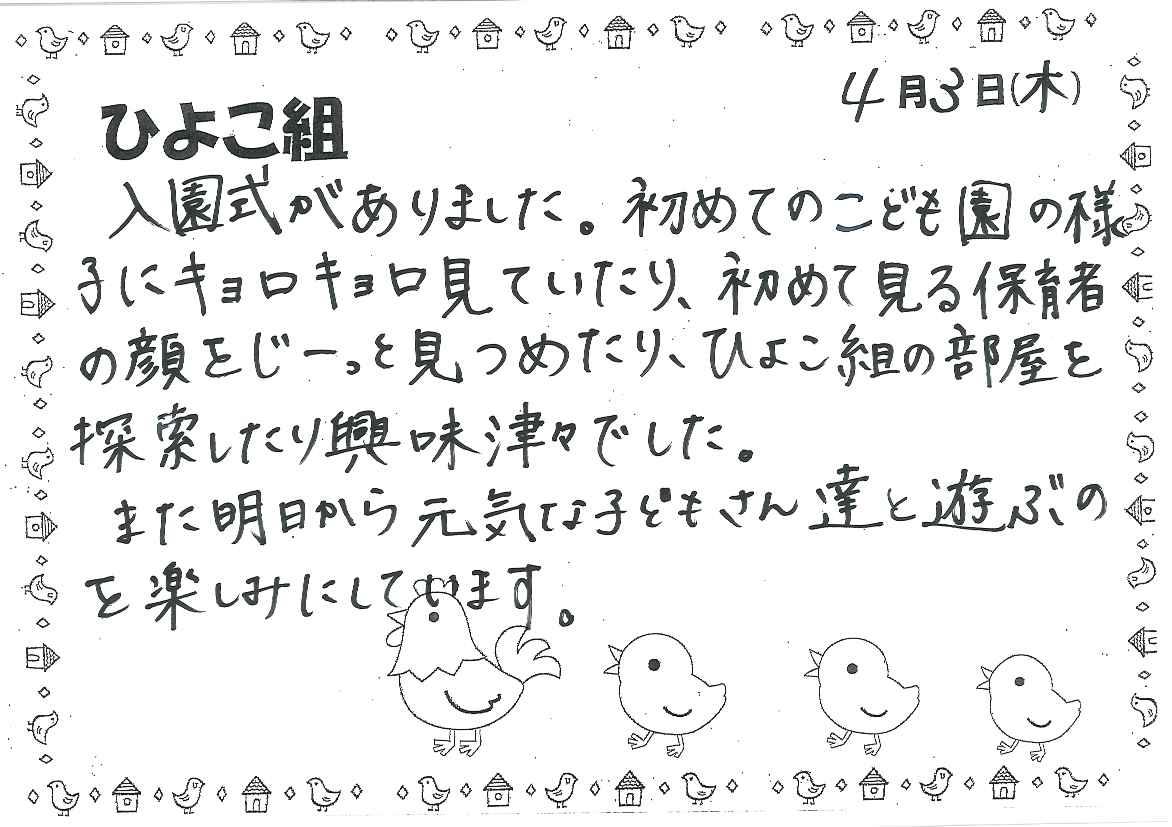 4月3日(木)
ひよこ組
入園式がありました。初めてのこども園の様
子にキョロキョロ見ていたり、初めて見る保育者
の顔をじーっと見つめたり、ひよこ組の部屋を
探索したり興味津々でした。
また明日から元気な子どもさん達と遊ぶの
を楽しみにしています。